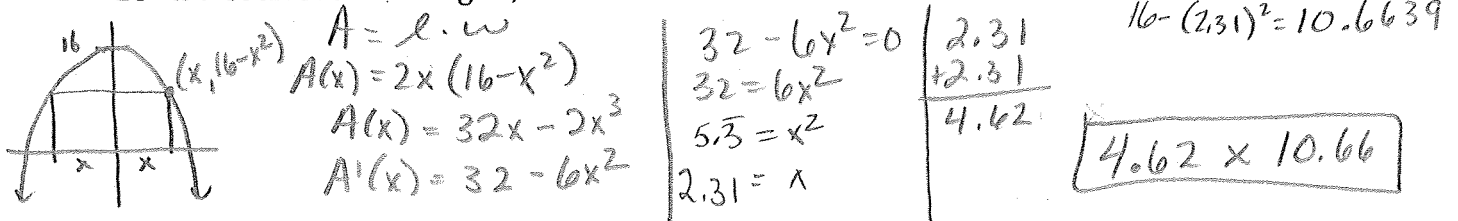 16
(x, 16-x²)
x x
A = l · w
A(x) = 2x (16-x²)
A(x) = 32x - 2x³
A'(x) = 32 - 6x²
32 - 6x² = 0
32 = 6x²
5.3̅ = x²
2.31 = x
2.31
+2.31
4.62
16-(2.31)² = 10.6639
4.62 x 10.66